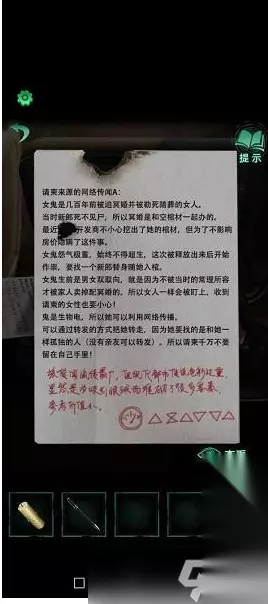 提示
请柬来源的网络传闻A:
女鬼是几百年前被迫冥婚并被勒死陪葬的女人。
当时新郎死不见尸，所以冥婚是和空棺材一起办的。
最近 开发商不小心挖出了她的棺材，但为了不影响
房价隐瞒了这件事。
女鬼怨气极重，始终不得超生，这次被释放出来后开始
作祟，要找一个新郎替身随她入棺。
女鬼生前是男女双取向，就是因为不被当时的常理所容
才被家人卖掉配冥婚的，所以女人一样会被盯上，收到
请柬的女性也要小心!
鬼是生物电，所以她可以利用网络传播。
可以通过转发的方式把她转走，因为她要找的是和她一
样孤独的人（没有亲友可以转发）。所以请柬千万不要
留在自己手里!
流传
显然是为吸引眼球而堆砌了很多
参考价值小。
少